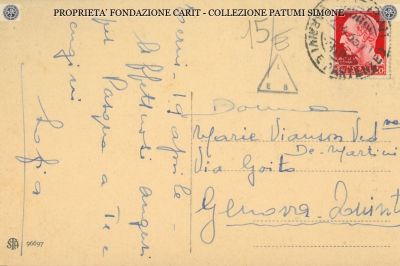 PROPRIETA' FONDAZIONE CARIT - COLLEZIONE PATUMI SIMONE
15/E
E B
ARRIVI E PARTENZE
Terni - 13 aprile -
Affettuosi auguri
per Pasqua a Te e
cugini
Sofia
Donna
Marie Vianson Ved
De Martini
Via Goito
Genova - Quinto
STA 96697